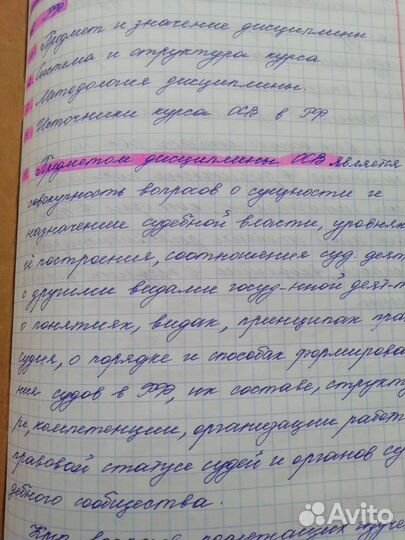 в РФ
Предмет и значение дисциплины
Система и структура курса
Методология дисциплины.
Источники курса ОСВ в РФ
Предметом дисциплины ОСВ является
совокупность вопросов о сущности и
назначении судебной власти, уровнях
её построения, соотношения суд. деят
с другими видами госуд-нной деят-т
о понятиях, видах, принципах пра
судия, о порядке и способах формирова
ния судов в РФ, их составе, структ
ре, компетенции, организации работ
правовой статусе судей и органов су
дебного сообщества.
Круг вопросов
Avito